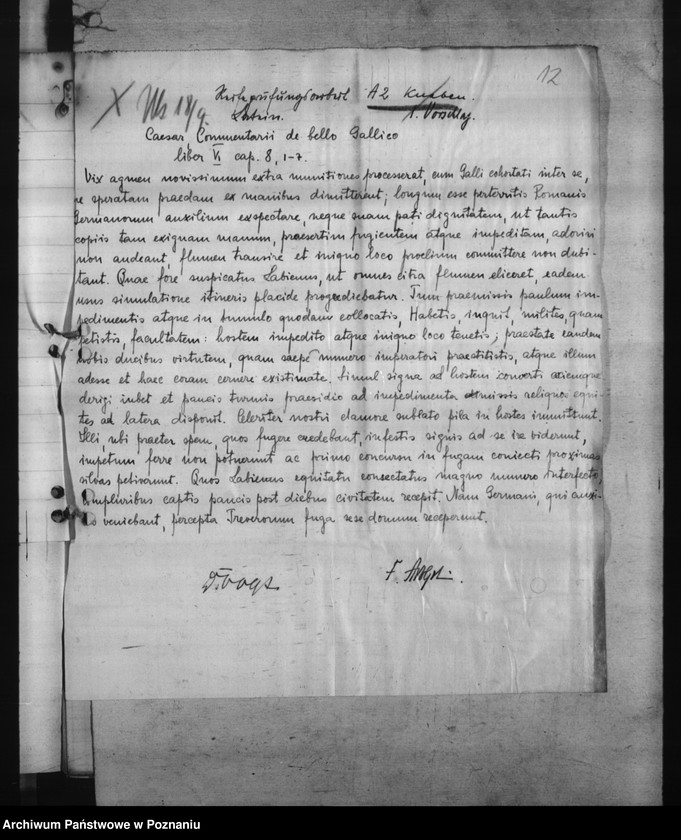 12
X 18/9.
Reifeprüfungsarbeit A2 Knaben.
Latein. 1. Vorschlag.
Caesar, Commentarii de bello Gallico
liber VI cap. 8, 1-7.
Vix agmen novissimum extra munitiones processerat, cum Galli cohortati inter se,
ne speratam praedam ex manibus dimitterent; longum esse perterritis Romanis
Germanorum auxilium exspectare, neque suam pati dignitatem, ut tantis
copiis tam exiguam manum, praesertim fugientem atque impeditam, adoriri
non audeant, flumen transire et iniquo loco proelium committere non dubi-
tant. Quae fore suspicatus Labienus, ut omnes citra flumen eliceret, eadem
usus simulatione itineris placide progrediebatur. Tum praemissis paulum im-
pedimentis atque in tumulo quodam collocatis, Habetis, inquit, milites, quam
petistis, facultatem: hostem impedito atque iniquo loco tenetis; praestate eandem
nobis ducibus virtutem, quam saepe numero imperatori praestitistis, atque illum
adesse et haec coram cernere existimate. Simul signa ad hostem converti aciemque
derigi iubet et paucis turmis praesidio ad impedimenta dimissis reliquos equi-
tes ad latera disponit. Celeriter nostri clamore sublato pila in hostes immittunt.
Illi, ubi praeter spem, quos fugere credebant, infestis signis ad se ire viderunt,
impetum ferre non potuerunt ac primo concursu in fugam coniecti proximas
silvas petiverunt. Quos Labienus equitatu consectatus magno numero interfecto,
compluribus captis paucis post diebus civitatem recepit. Nam Germani, qui auxi-
lio veniebant, percepta Treverorum fuga sese domum receperunt.
Archiwum Państwowe w Poznaniu